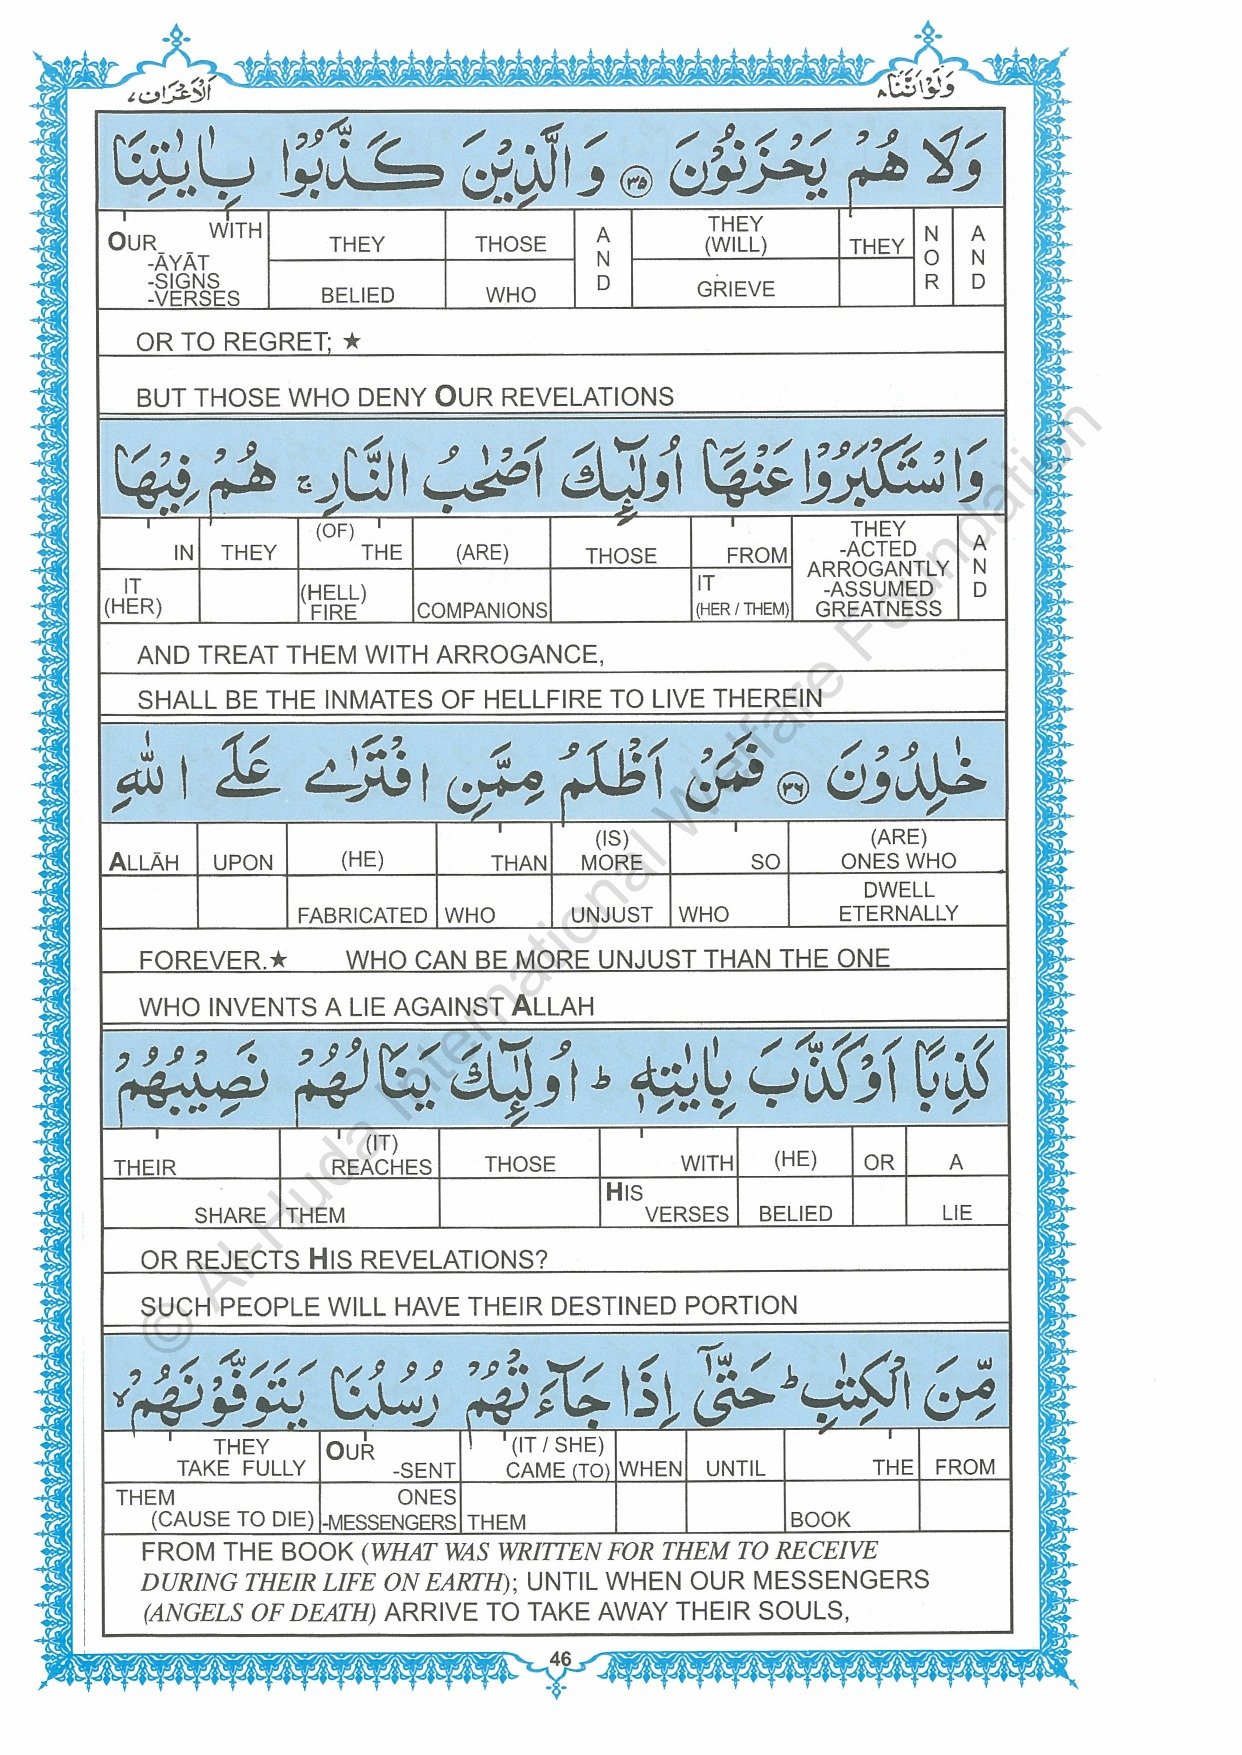 وَلَوْ اَنَّنَا ٨
اَلْاَعْرَاف ٧
وَلَا هُمْ يَحْزَنُوْنَ ۝٣٥ وَالَّذِيْنَ كَذَّبُوْا بِاٰيٰتِنَا
OUR WITH -ĀYĀT -SIGNS -VERSES | THEY BELIED | THOSE WHO | AND | THEY (WILL) GRIEVE | THEY | NOR | AND
OR TO REGRET; ★
BUT THOSE WHO DENY OUR REVELATIONS
وَاسْتَكْبَرُوْا عَنْهَاۤ اُولٰٓئِكَ اَصْحٰبُ النَّارِ ۚ هُمْ فِيْهَا
IN IT (HER) | THEY | (OF) THE (HELL) FIRE | (ARE) COMPANIONS | THOSE | FROM IT (HER / THEM) | THEY -ACTED ARROGANTLY -ASSUMED GREATNESS | AND
AND TREAT THEM WITH ARROGANCE,
SHALL BE THE INMATES OF HELLFIRE TO LIVE THEREIN
خٰلِدُوْنَ ۝٣٦ فَمَنْ اَظْلَمُ مِمَّنِ افْتَرٰى عَلَى اللّٰهِ
ALLĀH | UPON | (HE) FABRICATED | THAN WHO | (IS) MORE UNJUST | SO WHO | (ARE) ONES WHO DWELL ETERNALLY
FOREVER.★ WHO CAN BE MORE UNJUST THAN THE ONE
WHO INVENTS A LIE AGAINST ALLAH
كَذِبًا اَوْ كَذَّبَ بِاٰيٰتِهٖ ؕ اُولٰٓئِكَ يَنَالُهُمْ نَصِيْبُهُمْ
THEIR SHARE | (IT) REACHES THEM | THOSE | WITH HIS VERSES | (HE) BELIED | OR | A LIE
OR REJECTS HIS REVELATIONS?
SUCH PEOPLE WILL HAVE THEIR DESTINED PORTION
مِّنَ الْكِتٰبِ ؕ حَتّٰۤى اِذَا جَآءَتْهُمْ رُسُلُنَا يَتَوَفَّوْنَهُمْ ۙ
THEY TAKE FULLY THEM (CAUSE TO DIE) | OUR -SENT ONES -MESSENGERS | (IT / SHE) CAME (TO) THEM | WHEN | UNTIL | THE BOOK | FROM
FROM THE BOOK (WHAT WAS WRITTEN FOR THEM TO RECEIVE
DURING THEIR LIFE ON EARTH); UNTIL WHEN OUR MESSENGERS
(ANGELS OF DEATH) ARRIVE TO TAKE AWAY THEIR SOULS,
46
© Al-Huda International Welfare Foundation